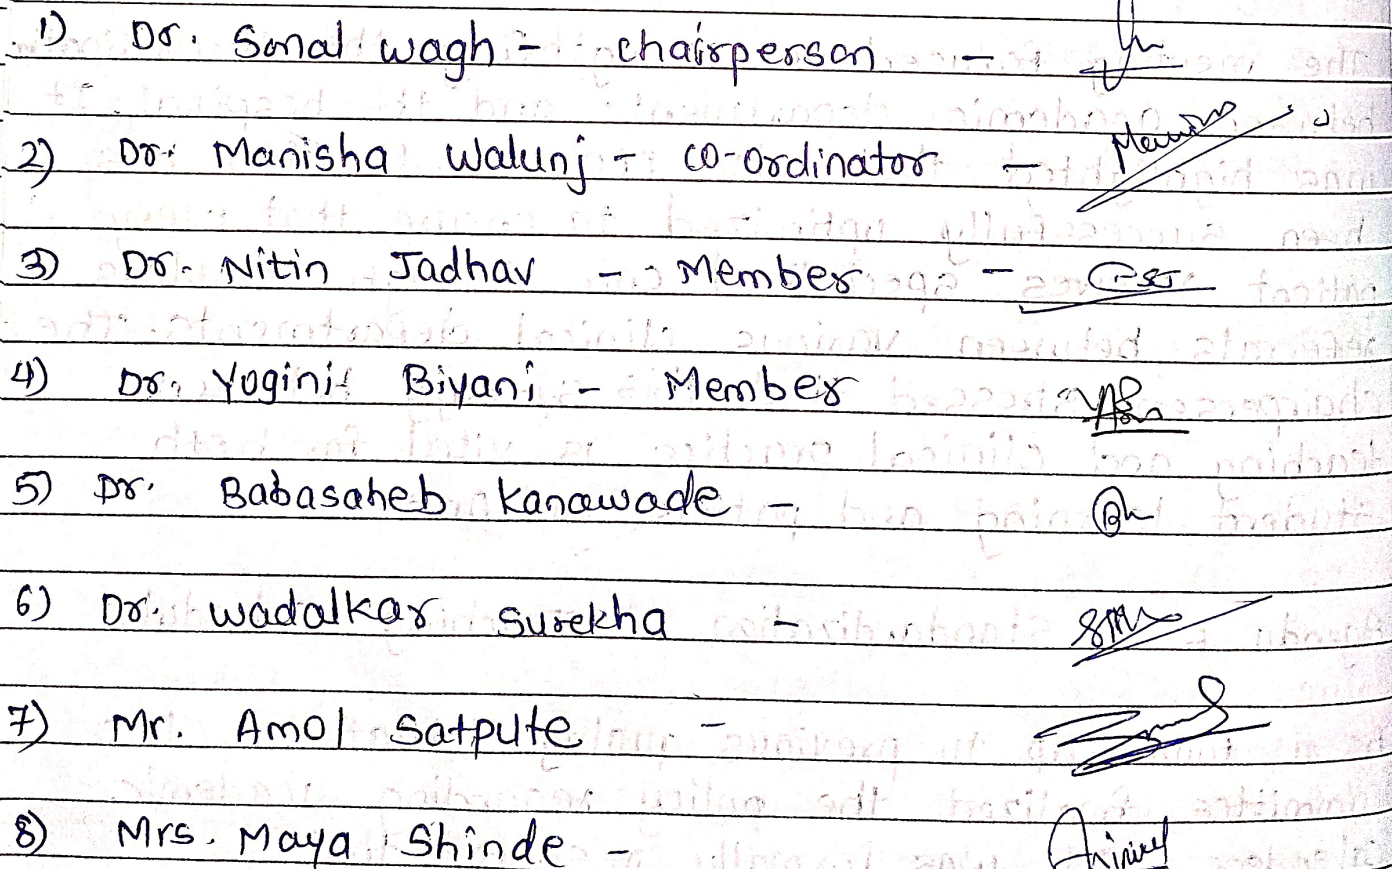 1) Dr. Sonal wagh - chairperson -
2) Dr. Manisha Walunj - co-ordinator -
3) Dr. Nitin Jadhav - Member -
4) Dr. Yogini Biyani - Member
5) Dr. Babasaheb Kanawade -
6) Dr. wadalkar Surekha -
7) Mr. Amol Satpute -
8) Mrs. Maya Shinde -